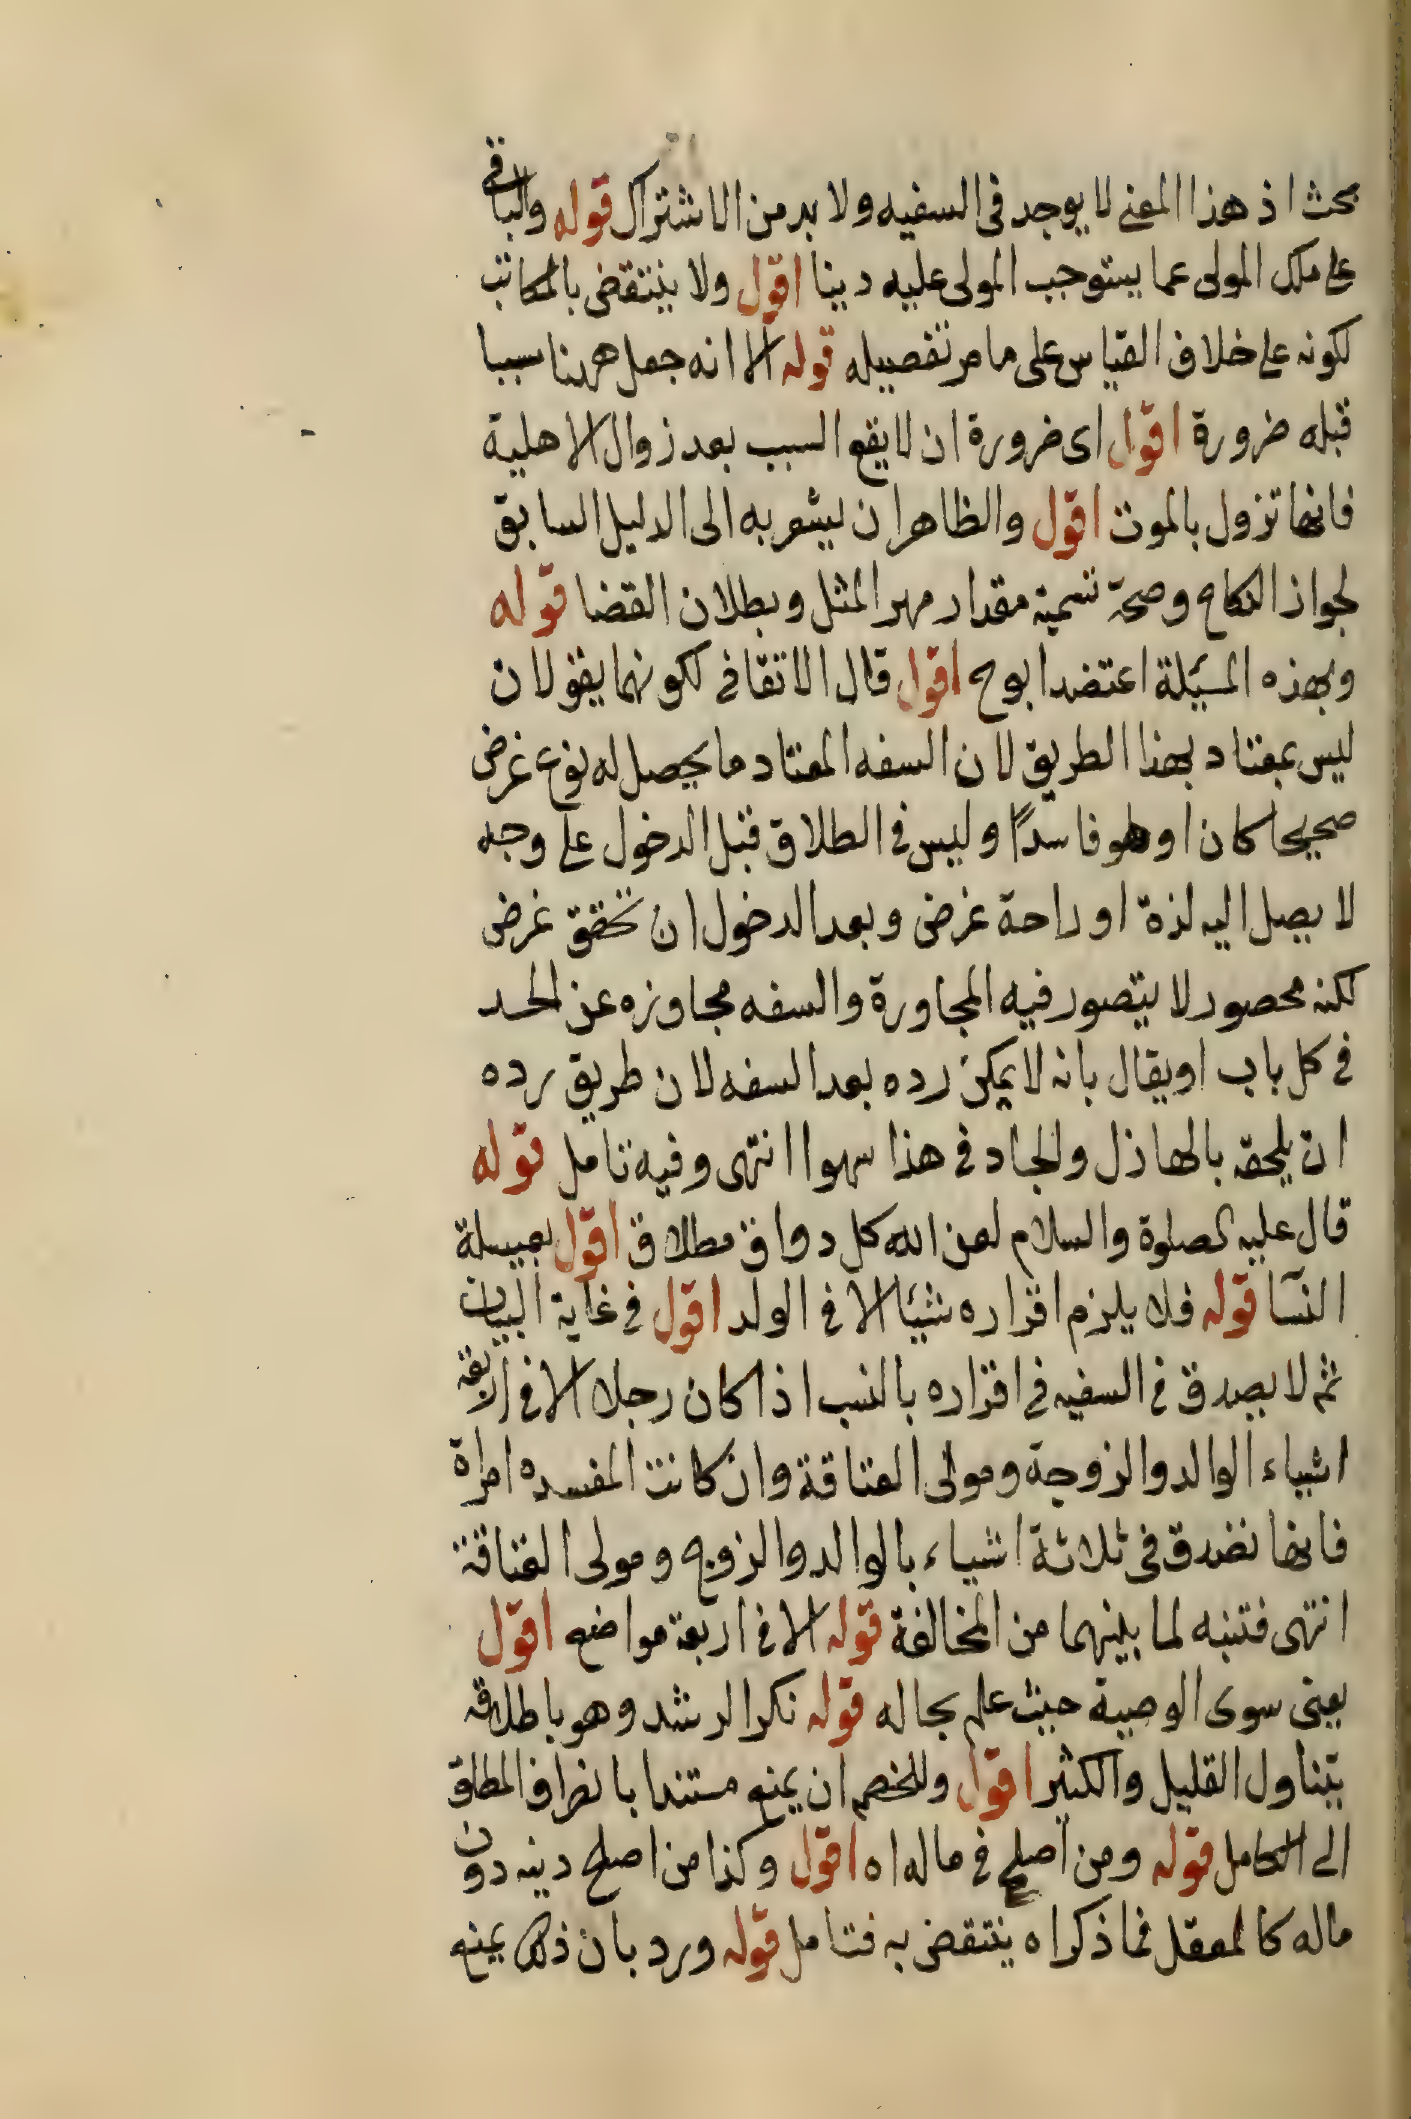 بحث اذ هذا المعنى لا يوجد فى السفيه ولا بد من الاشتراك قوله والباقى
على ملك المولى عما يستوجب المولى عليه دينا اقول ولا ينتقض بالمكاتب
لكونه على خلاف القياس على ما مر تفصيله قوله الا انه جعل ههنا سببا
قبله ضرورة اقول اى ضرورة ان لا يقع السبب بعد زوال الاهلية
فانها تزول بالموت اقول والظاهر ان يشعر به الى الدليل السابق
لجواز النكاح وصحة تسمية مقدار مهر المثل وبطلان القضا قوله
وبهذه المسئلة اعتضد ابو ح اقول قال الاتقافى لكونهما يقولان
ليس بمعتاد بهذا الطريق لان السفه المعتاد ما يحصل له نوع غرض
صحيحا كان او هو فاسدًا وليس فى الطلاق قبل الدخول على وجه
لا يصل اليه لذة او راحة غرض وبعد الدخول ان تحقق غرض
لكنه محصور لا يتصور فيه المجاورة والسفه مجاوزه عن الحد
فى كل باب او يقال بانه لا يمكن رده بعد السفه لان طريق رده
ان يلحق بالهازل والجاد فى هذا سهوا انتهى وفيه تامل قوله
قال عليه الصلوة والسلام لعن الله كل دواق مطلاق اقول بعسيلة
النسآ قوله فلا يلزم اقراره شيئا الا فى الولد اقول فى غاية البيان
ثم لا يصدق فى السفيه فى اقراره بالنسب اذا كان رجلا الا فى اربعة
اشياء الوالد والزوجة ومولى العتاقة وان كانت المفسده امراة
فانها تصدق فى ثلاثة اشياء بالوالد والزوج ومولى العتاقة
انتهى فتنبه لما بينهما من المخالفة قوله الا فى اربعة مواضع اقول
يعنى سوى الوصية حيث علم بحاله قوله نكر الرشد وهو باطلاقه
يتناول القليل والكثير اقول وللخصم ان يمنع مستندا بانصراف المطلق
الى الكامل قوله ومن اصلح فى ماله اه اقول وكذا من اصلح دينه دون
ماله كالمعقل فما ذكراه ينتقض به فتامل قوله ورد بان ذلك يمنع